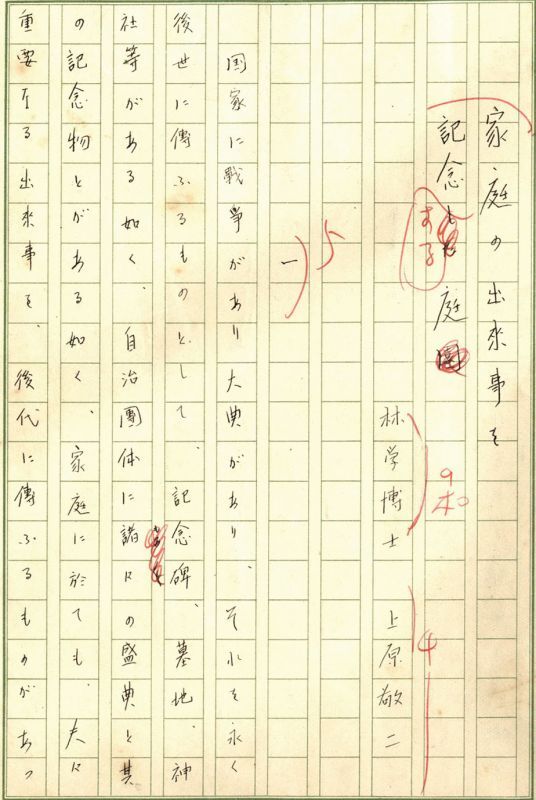 家庭の出來事を
記念する庭
林学博士　上原敬二
9ポ
4
5
一
国家に戰爭があり大典があり、それを永く
後世に傳ふるものとして、記念碑、墓地、神
社等がある如く、自治團体に諸々の盛典と其
の記念物とがある如く、家庭に於ても、夫々
重要なる出來事を、後代に傳ふるものがあつ